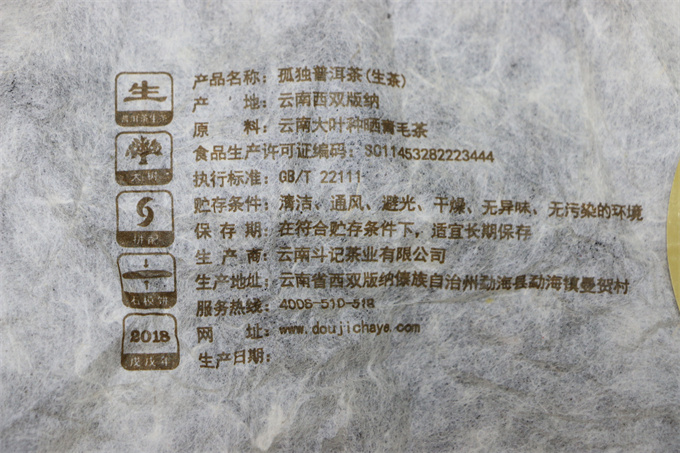 生
普洱茶生茶
大树
拼配
石模饼
2018
戊戌年
产品名称：孤独普洱茶(生茶)
产 地：云南西双版纳
原 料：云南大叶种晒青毛茶
食品生产许可证编码：SC11453282223444
执行标准：GB/T 22111
贮存条件：清洁、通风、避光、干燥、无异味、无污染的环境
保 存 期：在符合贮存条件下，适宜长期保存
生 产 商：云南斗记茶业有限公司
生产地址：云南省西双版纳傣族自治州勐海县勐海镇曼贺村
服务热线：4006-510-518
网 址：www.doujichaye.com
生产日期：